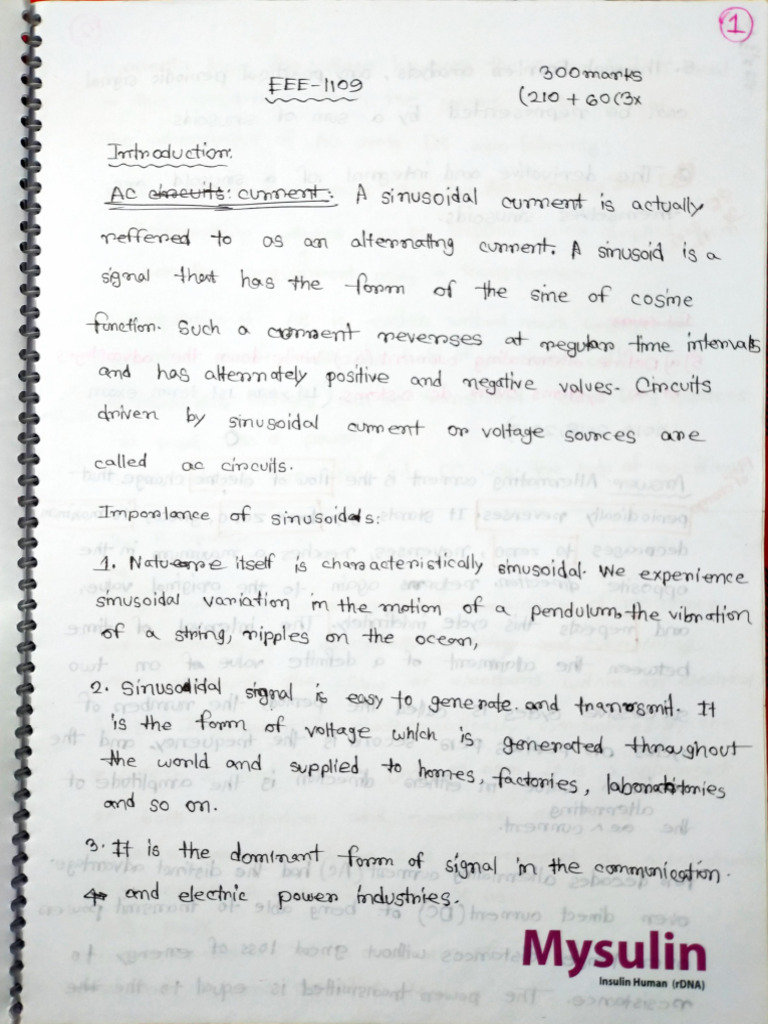 1
EEE-1109
300 marks
(210 + 60(3x
Introduction.
AC circuits: current: A sinusoidal current is actually
reffered to as an alternating current. A sinusoid is a
signal that has the form of the sine of cosine
function. Such a current reverses at regular time intervals
and has alternately positive and negative values. Circuits
driven by sinusoidal current or voltage sources are
called ac circuits.
Importance of sinusoids:
1. Nature itself is characteristically sinusoidal. We experience
sinusoidal variation in the motion of a pendulum, the vibration
of a string, ripples on the ocean,
2. Sinusoidal signal is easy to generate and transmit. It
is the form of voltage which is generated throughout
the world and supplied to homes, factories, laboratories
and so on.
3. It is the dominant form of signal in the communication.
and electric power industries.
Mysulin
Insulin Human (rDNA)